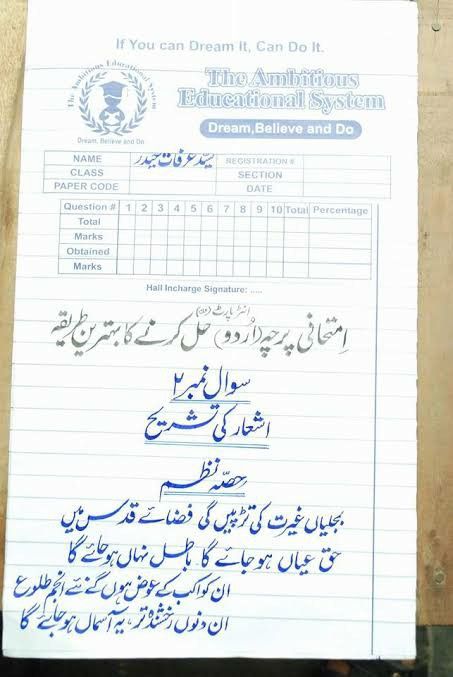 If You can Dream It, Can Do It.
The Ambitious Educational System
Dream, Believe and Do
The Ambitious
Educational System
Dream,Believe and Do
NAME سیّد عرفات حیدر REGISTRATION #
CLASS SECTION
PAPER CODE DATE
Question # 1 2 3 4 5 6 7 8 9 10 Total Percentage
Total
Marks
Obtained
Marks
Hall Incharge Signature: .....
انٹر پارٹ
اِمتحانی پرچہ (اُردو) حل کرنے کا بہترین طریقہ
سوال نمبر ۲
اشعار کی تشریح
حصّہ نظم
بجلیاں غیرت کی تڑپیں گی فضائے قدس میں
حق عیاں ہو جائے گا باطل نہاں ہو جائے گا
ان کواکب کے عوض ہوں گے نئے انجم طلوع
ان دنوں رخشندہ تر، یہ آسماں ہو جائے گا